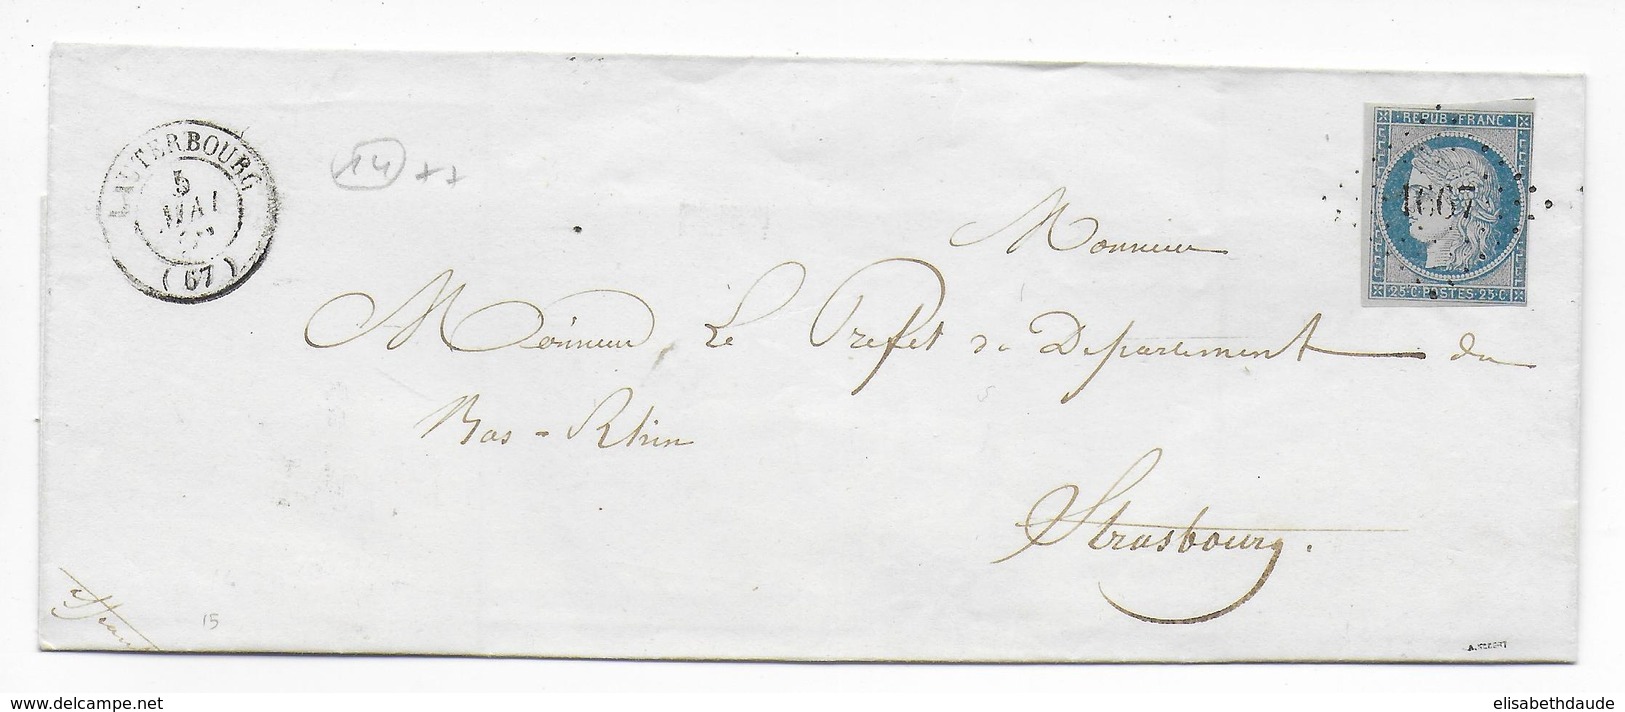 LAUTERBOURG
5
MAI
(67)
14 ++
REPUB. FRANC.
1667
25.C POSTES 25.C
Monsieur
Monsieur Le Prefet du Departement du
Bas-Rhin
Strasbourg.
15
elisabethdaude